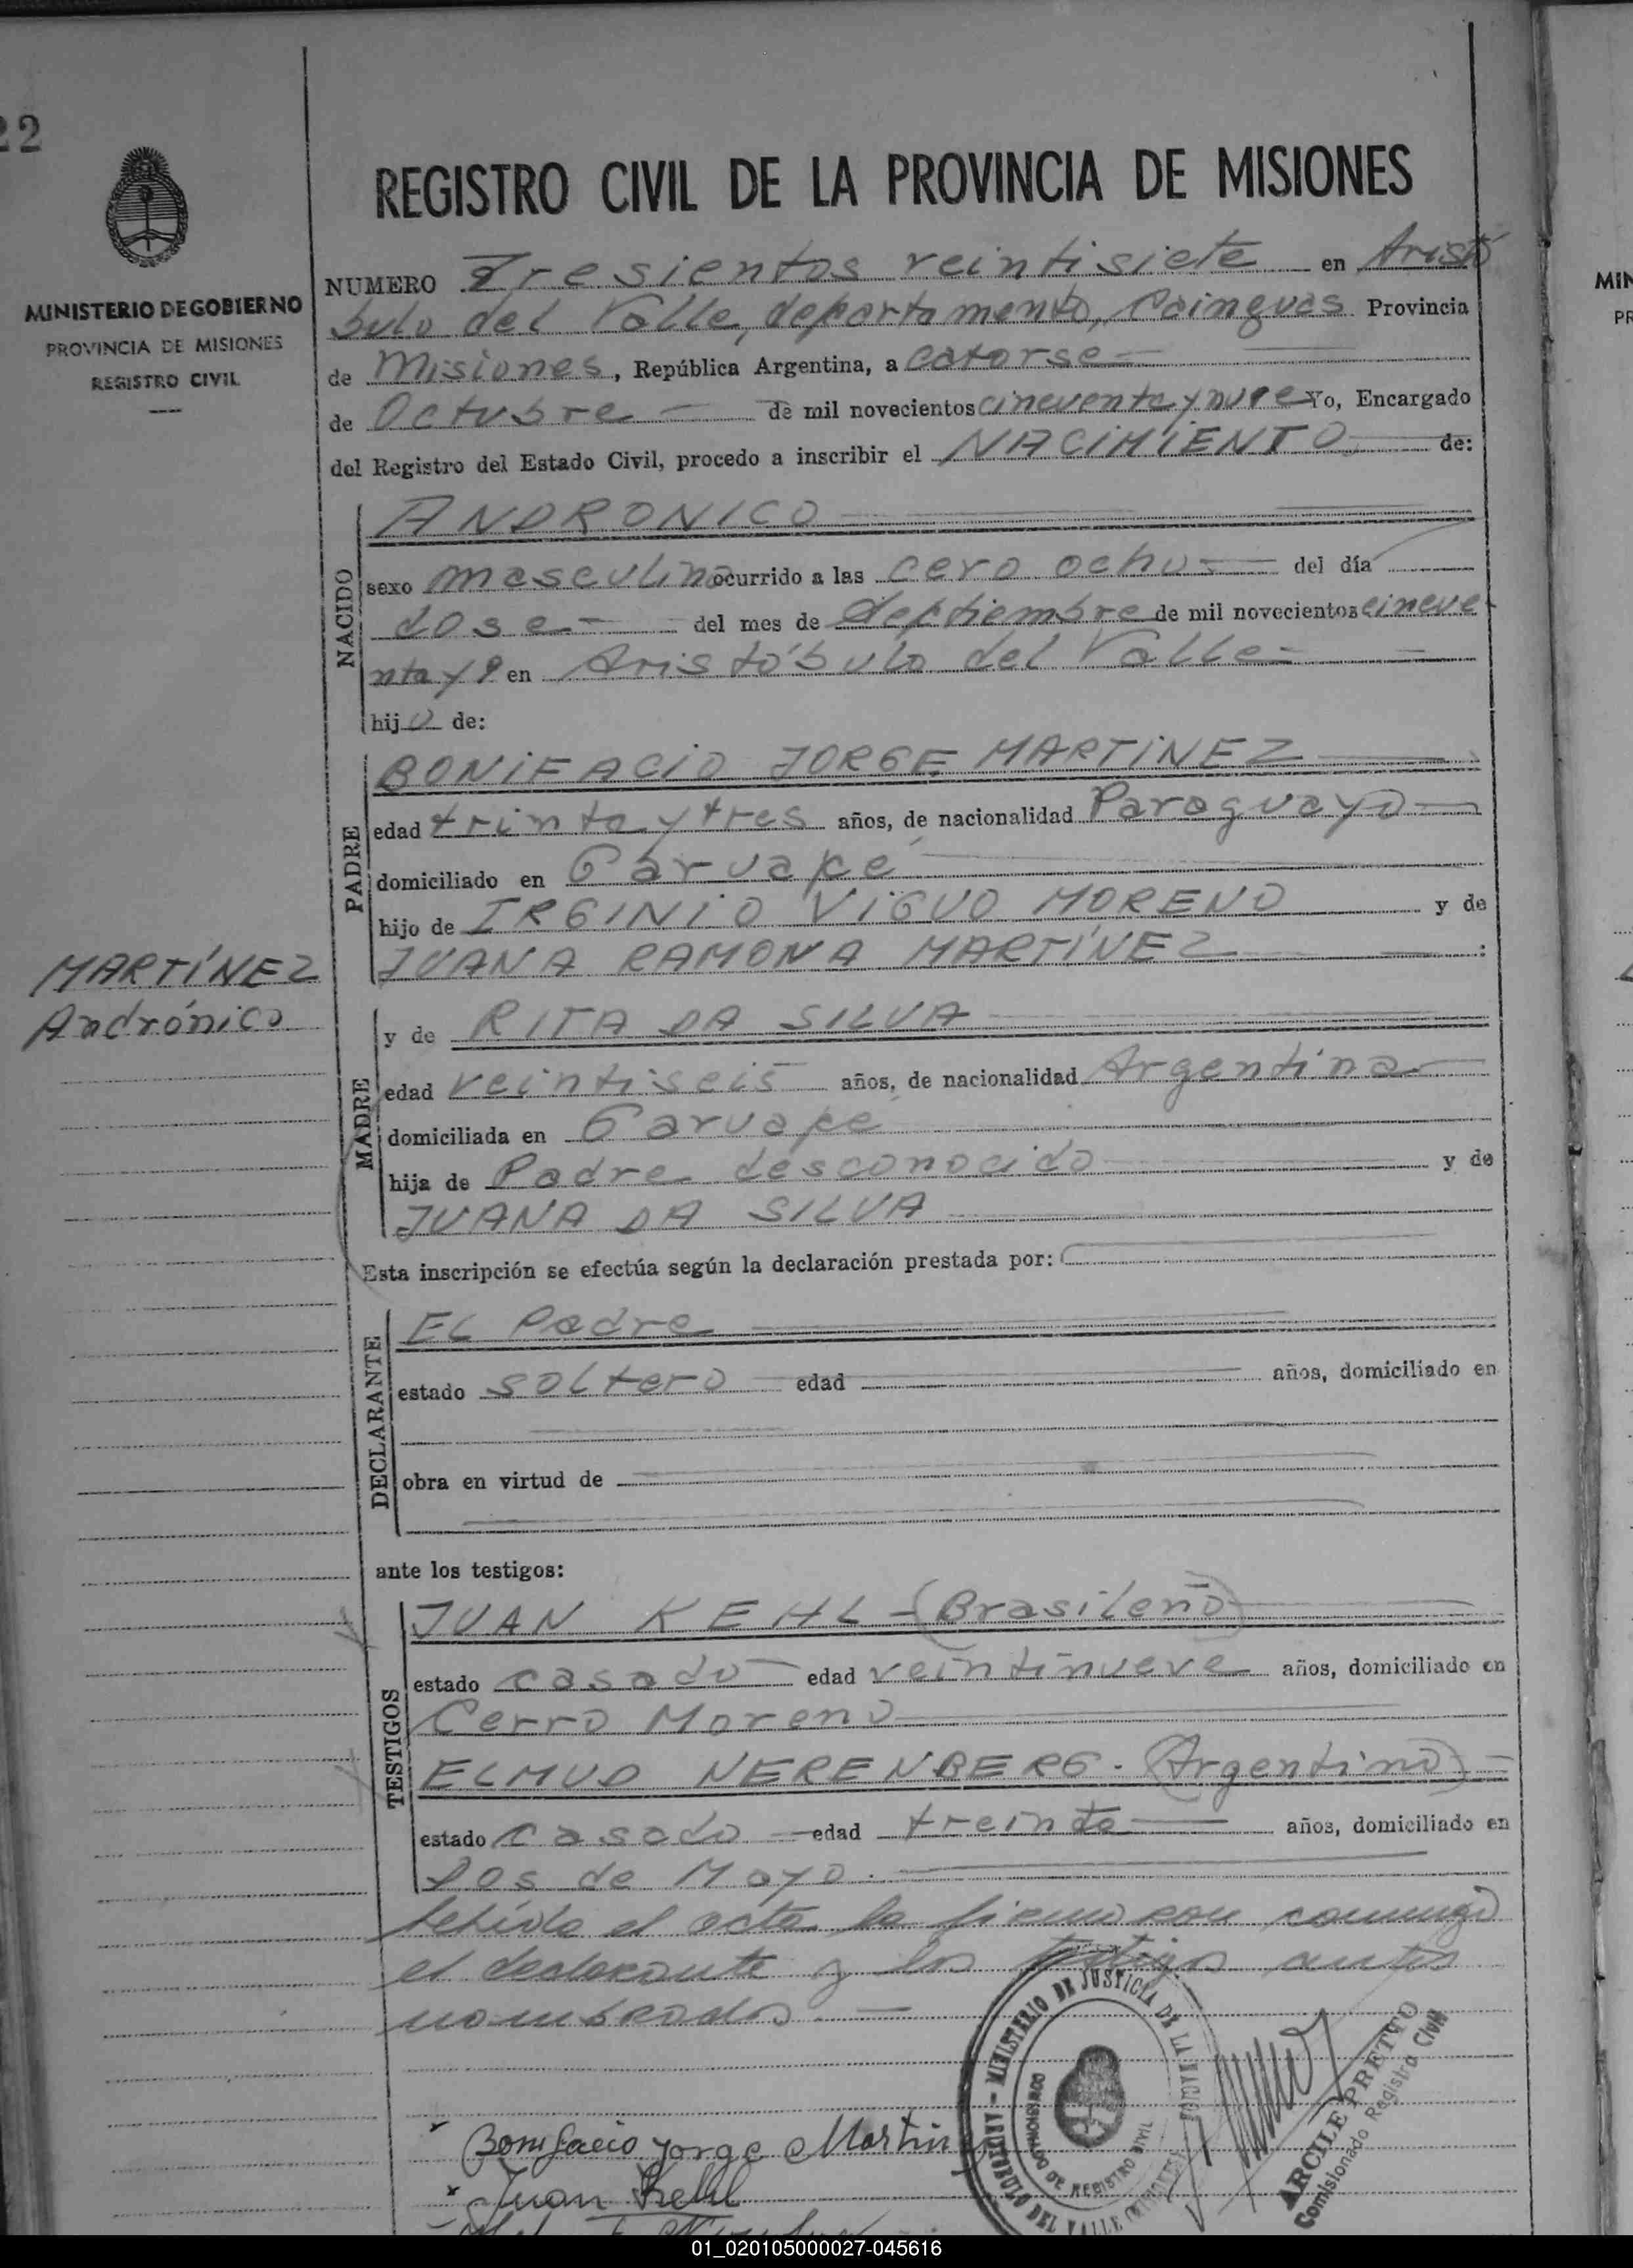 22
MINISTERIO DE GOBIERNO
PROVINCIA DE MISIONES
REGISTRO CIVIL
REGISTRO CIVIL DE LA PROVINCIA DE MISIONES
NUMERO Tresientos veintisiete en Aristó
bulo del Valle, departamento, Cainguas Provincia
de Misiones, República Argentina, a catorse
de Octubre de mil novecientos cincuenta y nueve Yo, Encargado
del Registro del Estado Civil, procedo a inscribir el NACIMIENTO de:
NACIDO
ANDRONICO
sexo masculino ocurrido a las cero ocho del día
dose del mes de Septiembre de mil novecientos cincue
nta y 9 en Aristóbulo del Valle
hijo de:
PADRE
BONIFACIO JORGE MARTINEZ
edad trinta y tres años, de nacionalidad Paraguayo
domiciliado en Garuapé
hijo de IRGINIO VIGUO MORENO y de
JUANA RAMONA MARTÍNEZ :
MARTÍNEZ
Andrónico
MADRE
y de RITA DA SILVA
edad veintiseis años, de nacionalidad Argentina
domiciliada en Garuapé
hija de Padre desconocido y de
JUANA DA SILVA
Esta inscripción se efectúa según la declaración prestada por:
DECLARANTE
EL Padre
estado soltero edad años, domiciliado en
obra en virtud de
ante los testigos:
TESTIGOS
JUAN KEHL - (Brasileño)
estado casado edad veintinueve años, domiciliado en
Cerro Moreno
ELMUD NERENBERG. (Argentino)
estado casado edad treinta años, domiciliado en
Dos de Mayo.
Lehida el acta la firman con conmigo
el declarante y los testigos antes
nombrados.
MINISTERIO DE JUSTICIA DE LA NACION
ARISTOBULO DEL VALLE (MISIONES)
DE REGISTRO CIVIL
ARCILE PRETTO
Comisionado Registro Civil
Bonifacio Jorge Martin
Juan Kehl
MIN
PR
01_020105000027-045616